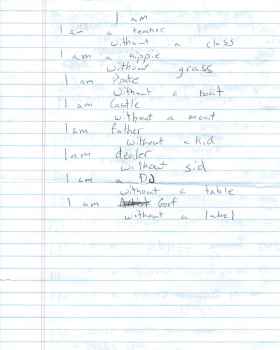 I am
I am a teacher
without a class
I am a hippie
without grass
I am Pirate
without a boat
I am Castle
without a moat
I am father
without a kid
I am dealer
without sid
I am a DJ
without a table
I am Gorf
without a label